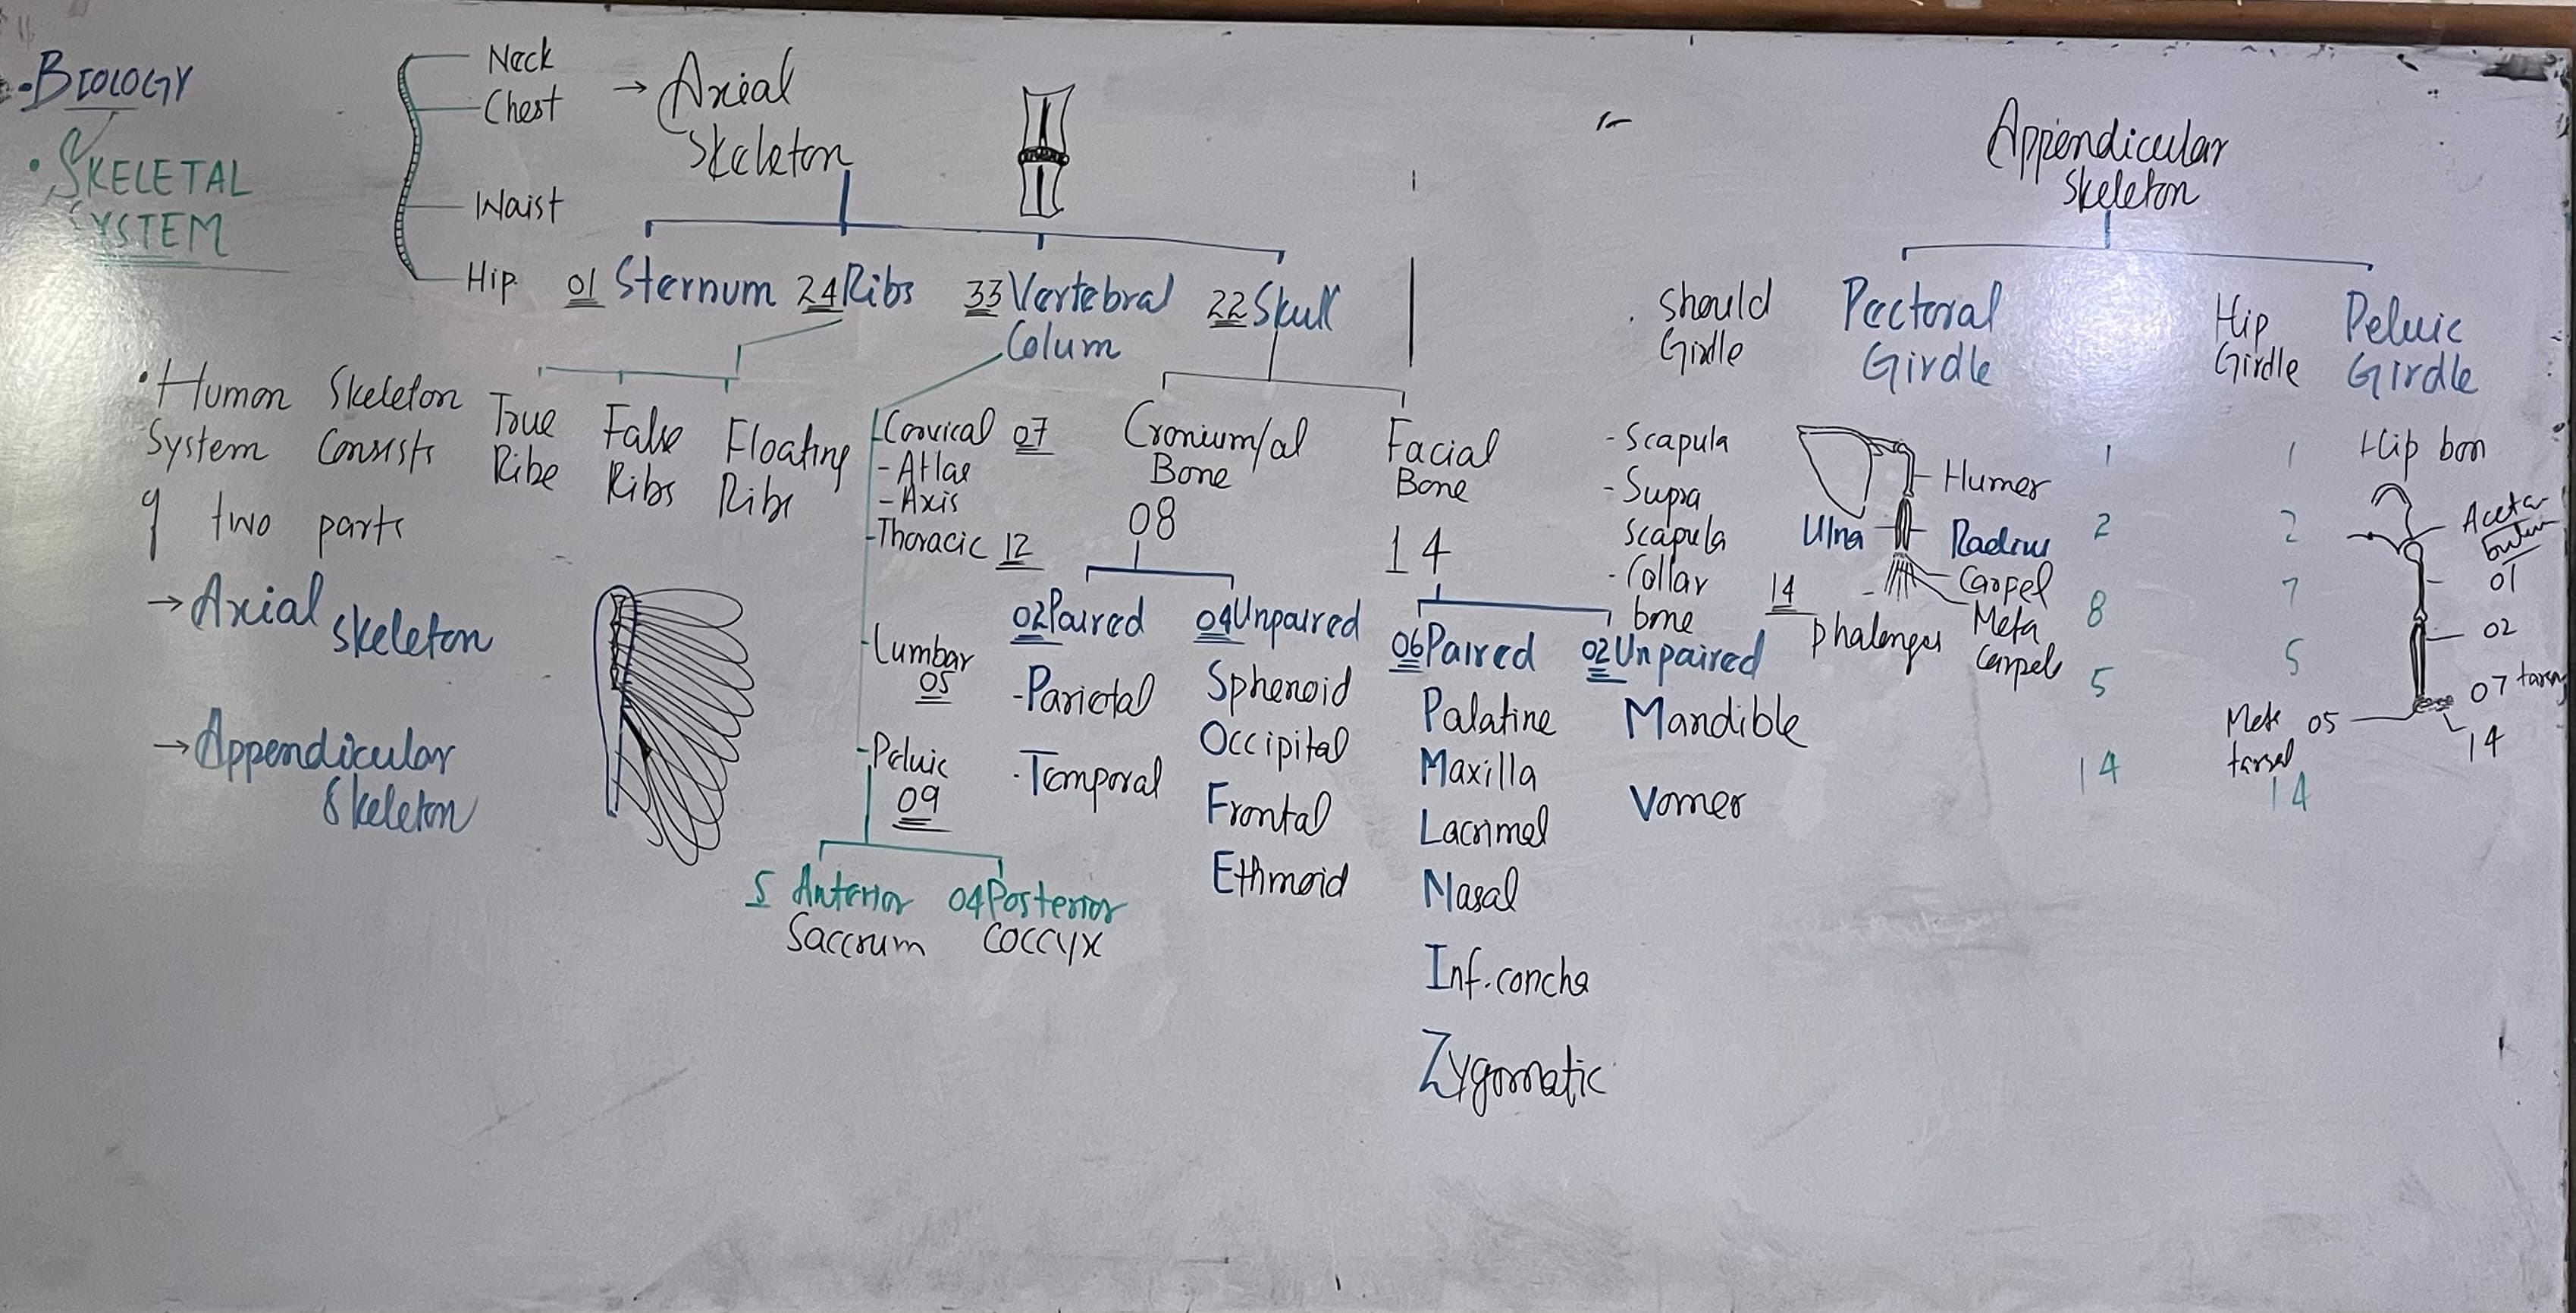 ·BIOLOGY
· SKELETAL
SYSTEM
Neck
Chest
Waist
Hip
→ Axial
Skeleton
01 Sternum 24 Ribs 33 Vertebral
Colum
22 Skull
· Human Skeleton
System Consists
of two parts
→ Axial
skeleton
→ Appendicular
Skeleton
True
Ribe
False
Ribs
Floating
Ribs
-Cervical 07
- Atlas
- Axis
-Thoracic 12
-Lumbar
05
-Peluic
09
5 Anterior
Saccrum
04 Posterior
COCCYX
Cronium/al
Bone
08
02 Paired
-Parietal
-Temporal
04 Unpaired
Sphenoid
Occipital
Frontal
Ethmoid
Facial
Bone
14
06 Paired
Palatine
Maxilla
Lacrimal
Nasal
Inf. concha
Zygomatic
02 Unpaired
Mandible
Vomer
Appendicular
skeleton
should
Girdle
Pectoral
Girdle
Hip
Girdle
Peluic
Girdle
- Scapula
- Supra
scapula
- Collar
bone
Humer
Ulna
Radius
Carpel
Meta
Carpels
14
phalenges
1
2
8
5
14
1
2
7
5
14
Hip bon
Aceta-
bulum
01
02
07 tarsa
Meta 05
tarsal
14